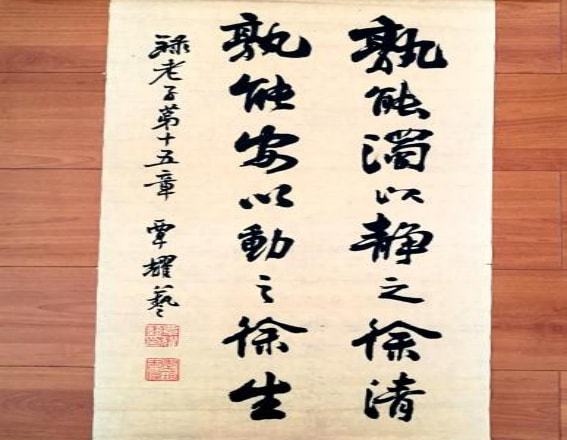 孰能濁以静之徐清
孰能安以動之徐生
録老子第十五章 覃耀藝